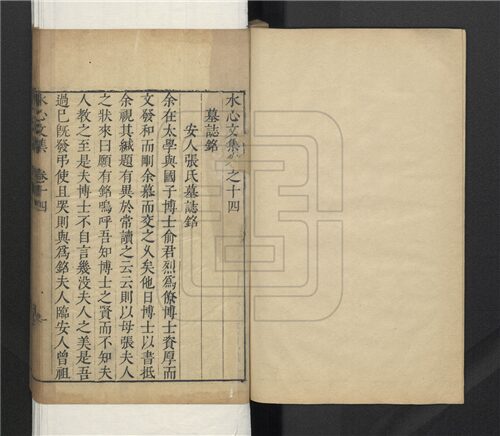 水心文集卷之十四
墓誌銘
安人張氏墓誌銘
余在太學與國子博士俞君烈為僚博士資厚而
文發和而剛余慕而交之久矣他日博士以書抵
余視其緘題有異於常讀之云云則以母張夫人
之狀來曰願有銘嗚呼吾知博士之賢而不知夫
人教之至是夫博士不自言幾没夫人之美是吾
過已旣發弔使且哭則與為銘夫人臨安人曾祖
水心文集 卷十四